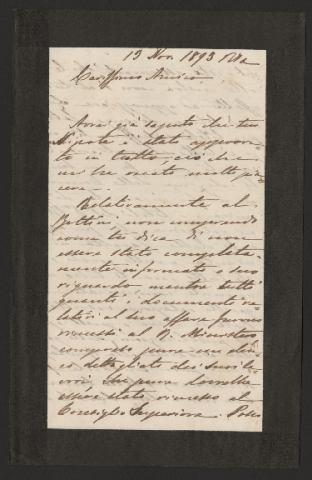 13 Nov. 1893
Carissimo Amico
Avrai già saputo che tuo
Nipote è stato approva-
to in tutto, ciò che
mi ha recato molto pia-
cere.
Relativamente al
non comprendo
come tu dica di non
essere stato completa-
mente informato a suo
riguardo, mentre tutti
quanti i documenti re-
lativi al suo affare furono
rimessi al R. Ministero
compreso pure un elen-
co dettagliato dei suoi la-
vori, che pure dovrebbe
essere stato rimesso al
Consiglio Superiore.